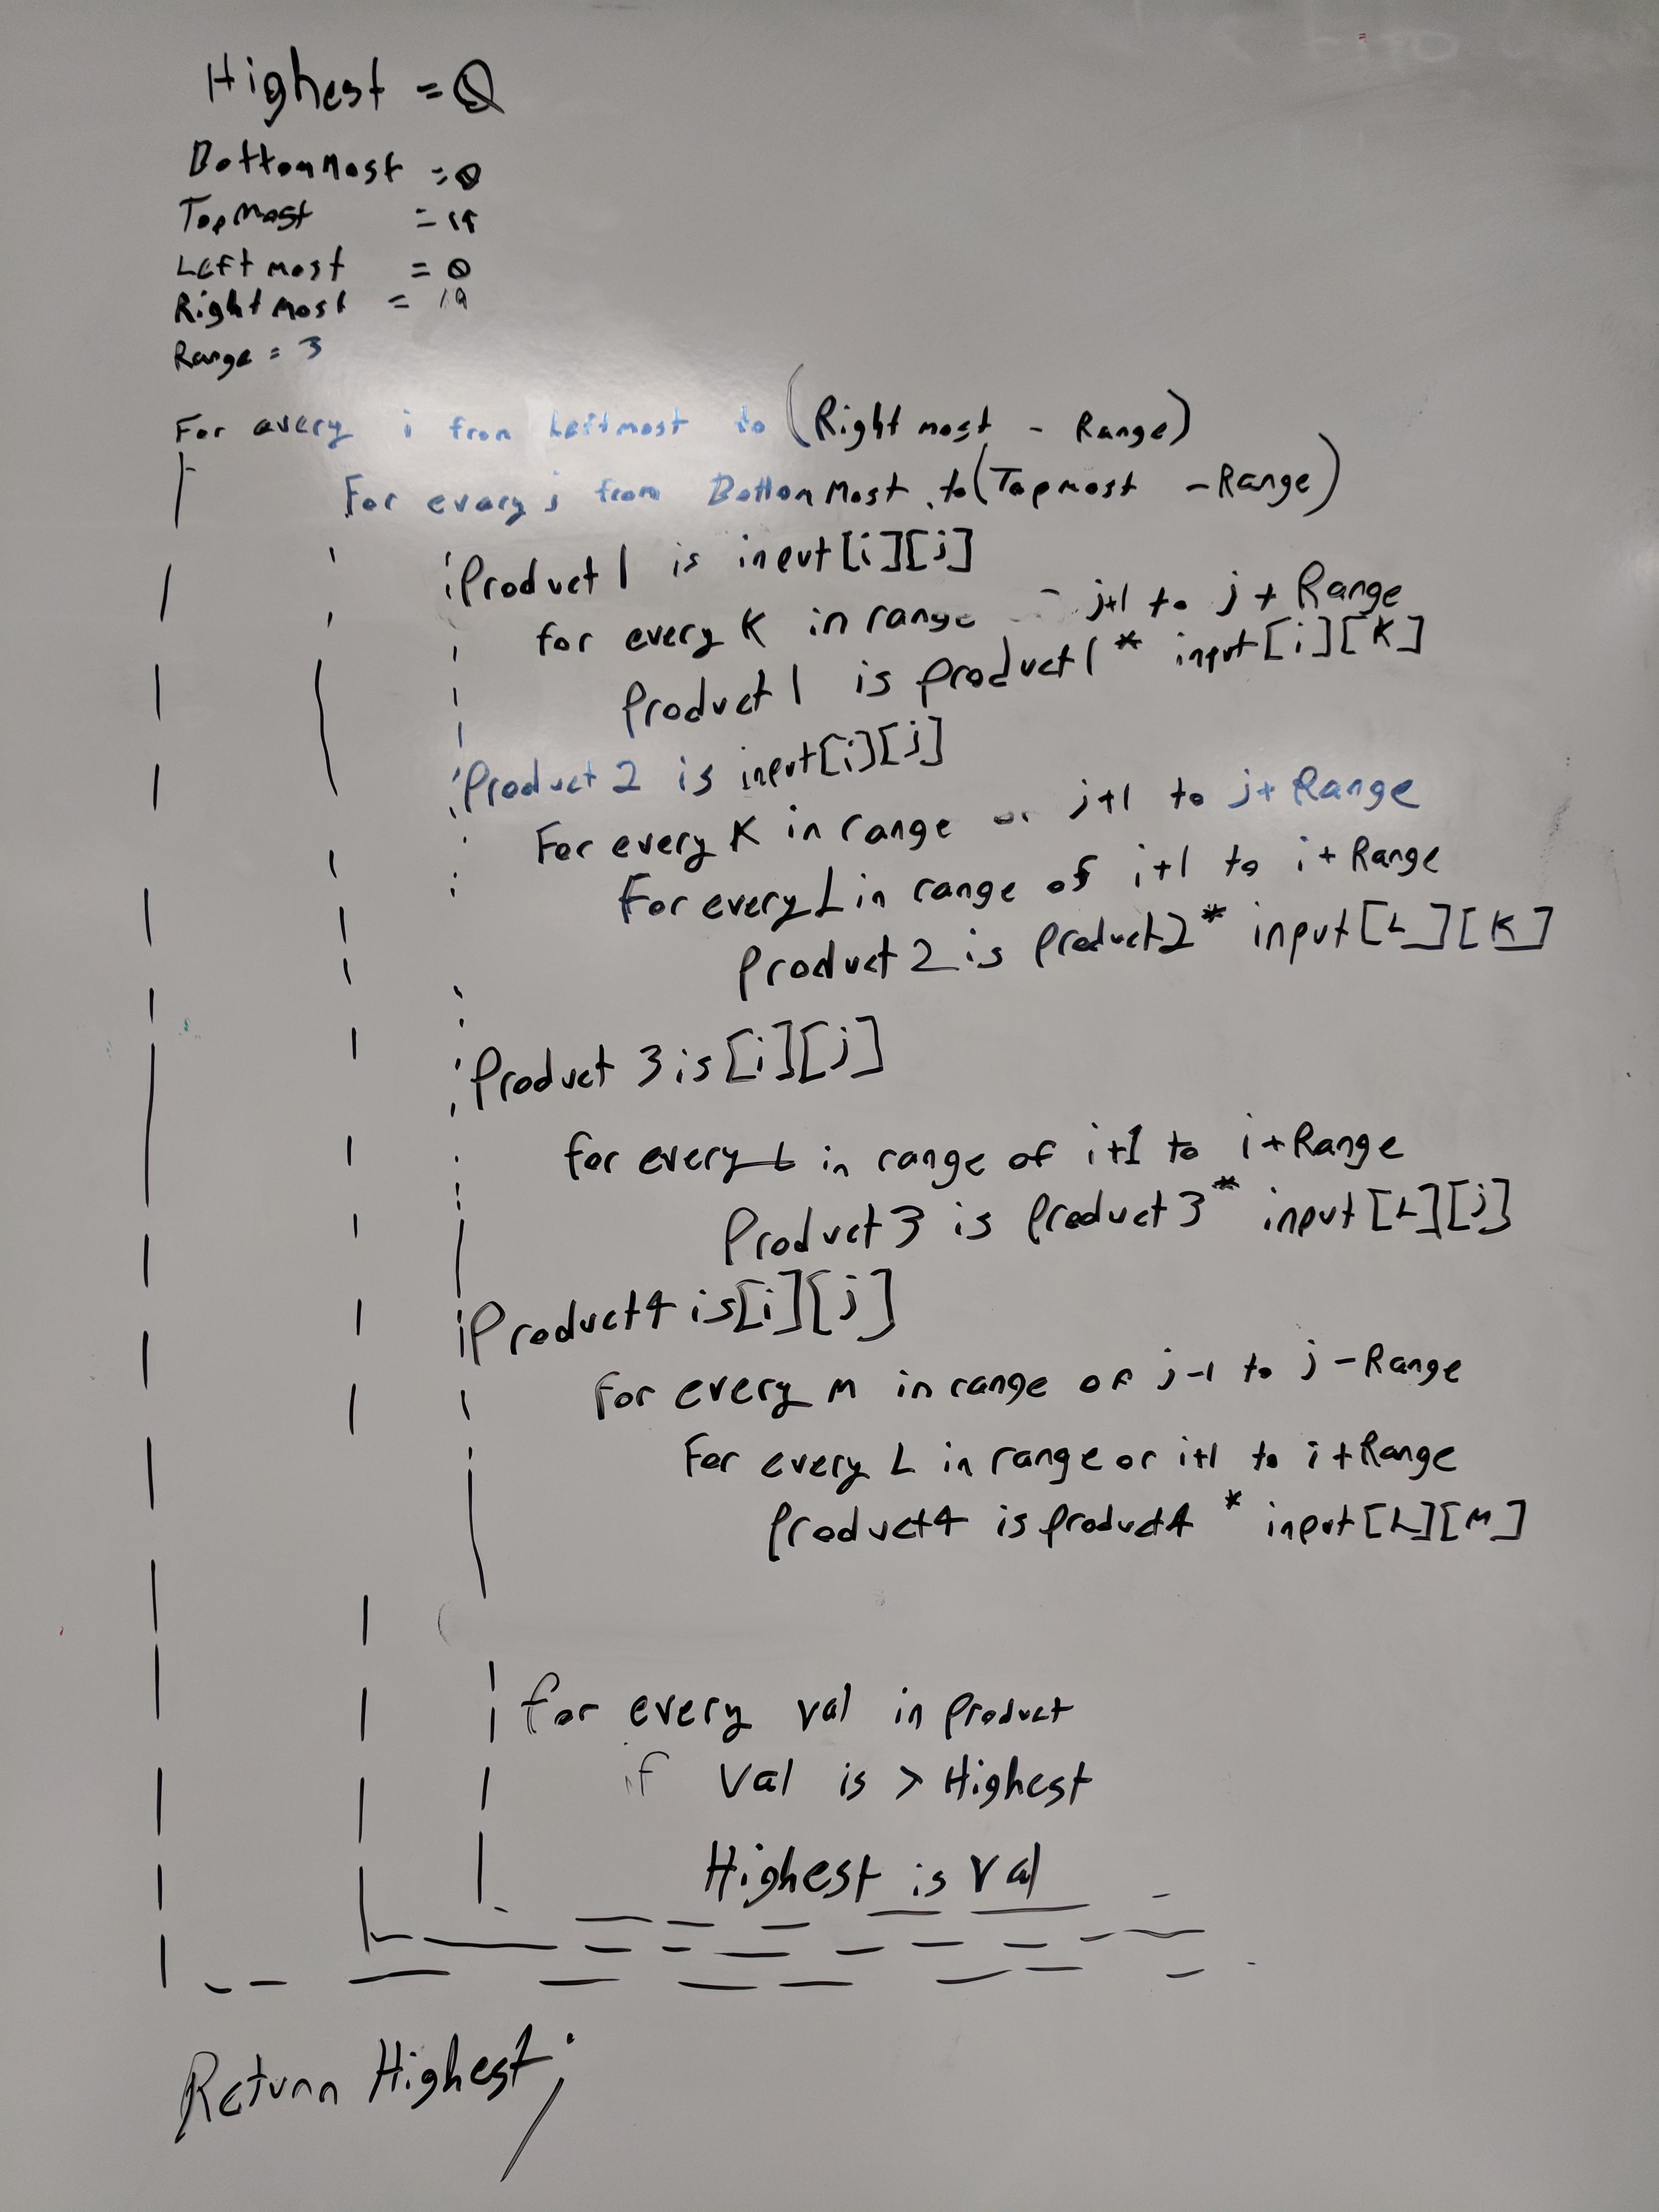 Highest = 0
BottomMost = 0
TopMost = 19
Leftmost = 0
Rightmost = 19
Range = 3
For every i from Leftmost to (Rightmost - Range)
For every j from BottomMost to (Topmost - Range)
Product 1 is input[i][j]
for every K in range j+1 to j + Range
Product 1 is product 1 * input[i][K]
Product 2 is input[i][j]
For every K in range j+1 to j + Range
For every L in range of i+1 to i + Range
Product 2 is product 2 * input[L][K]
Product 3 is [i][j]
for every L in range of i+1 to i + Range
Product 3 is product 3 * input[L][j]
Product 4 is [i][j]
For every M in range of j-1 to j - Range
For every L in range or i+1 to i + Range
product 4 is product 4 * input[L][M]
for every val in product
if Val is > Highest
Highest is Val
Return Highest;